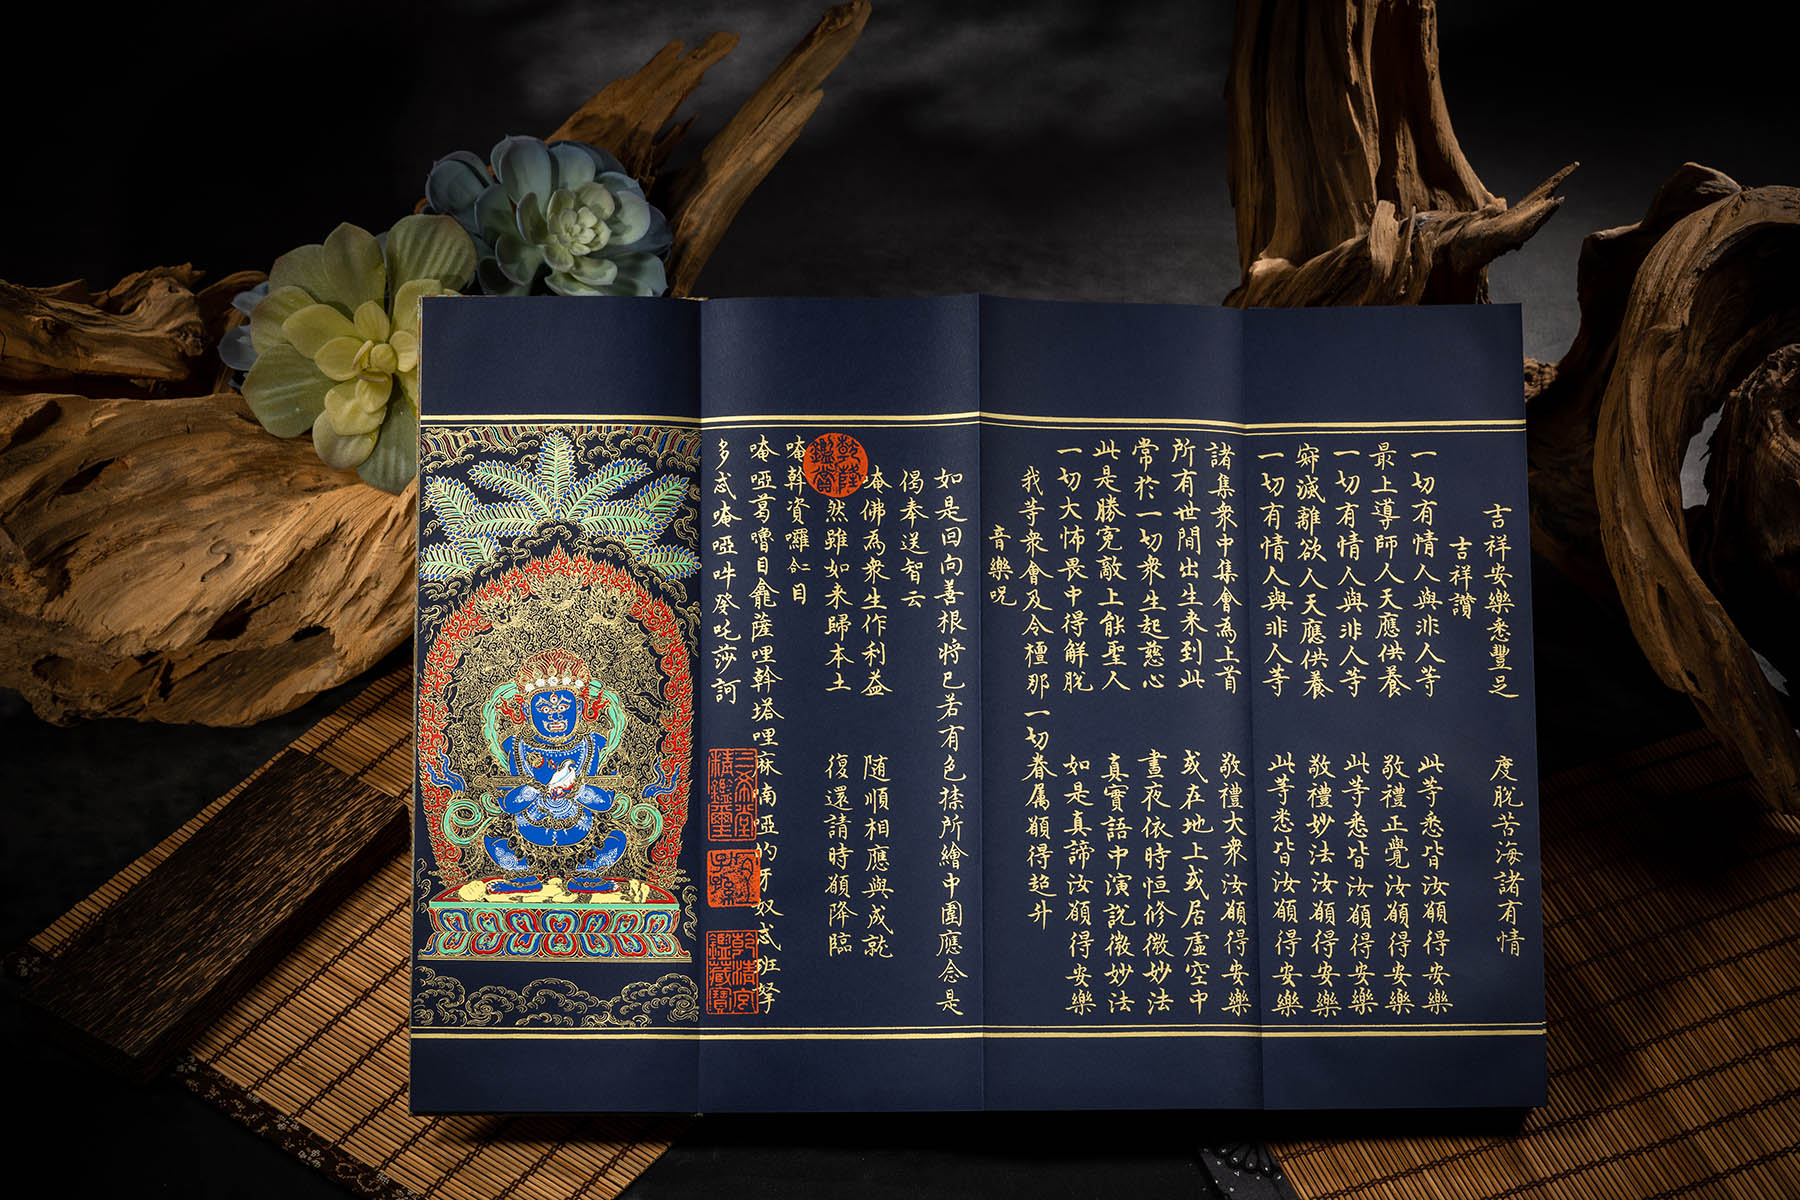 吉祥安樂悉豐足　度脫苦海諸有情
吉祥讚
一切有情人與非人等　此等悉皆汝願得安樂
最上導師人天應供養　敬禮正覺汝願得安樂
一切有情人與非人等　此等悉皆汝願得安樂
寂滅離欲人天應供養　敬禮妙法汝願得安樂
一切有情人與非人等　此等悉皆汝願得安樂
諸集衆中集會為上首　敬禮大衆汝願得安樂
所有世間出生来到此　或在地上或居虛空中
常於一切衆生起慈心　晝夜依時恒修微妙法
此是勝寃敵上能聖人　真實語中演說微妙法
一切大怖畏中得解脫　如是真諦汝願得安樂
我等衆會及令檀那一切眷属願得超升
音樂呪
如是回向善根将已若有色所繪中圍應念是
偈奉送智云
唵佛為衆生作利益　随順相應與成就
然雖如来歸本土　復還請時願降臨
唵斡資囉二合目
唵啞葛嚕目龕薩哩斡塔哩麻喃啞的牙奴忒班拏
多忒唵啞吽癹吒莎訶
乾隆鑑賞
三希堂精鑑璽
宜子孫
乾清宮鑑藏寶